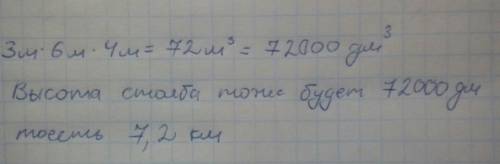 3м · 6м · 4м = 72 м³ = 72000 дм³
Высота столба тоже будет 72000 дм
тоесть 7,2 км